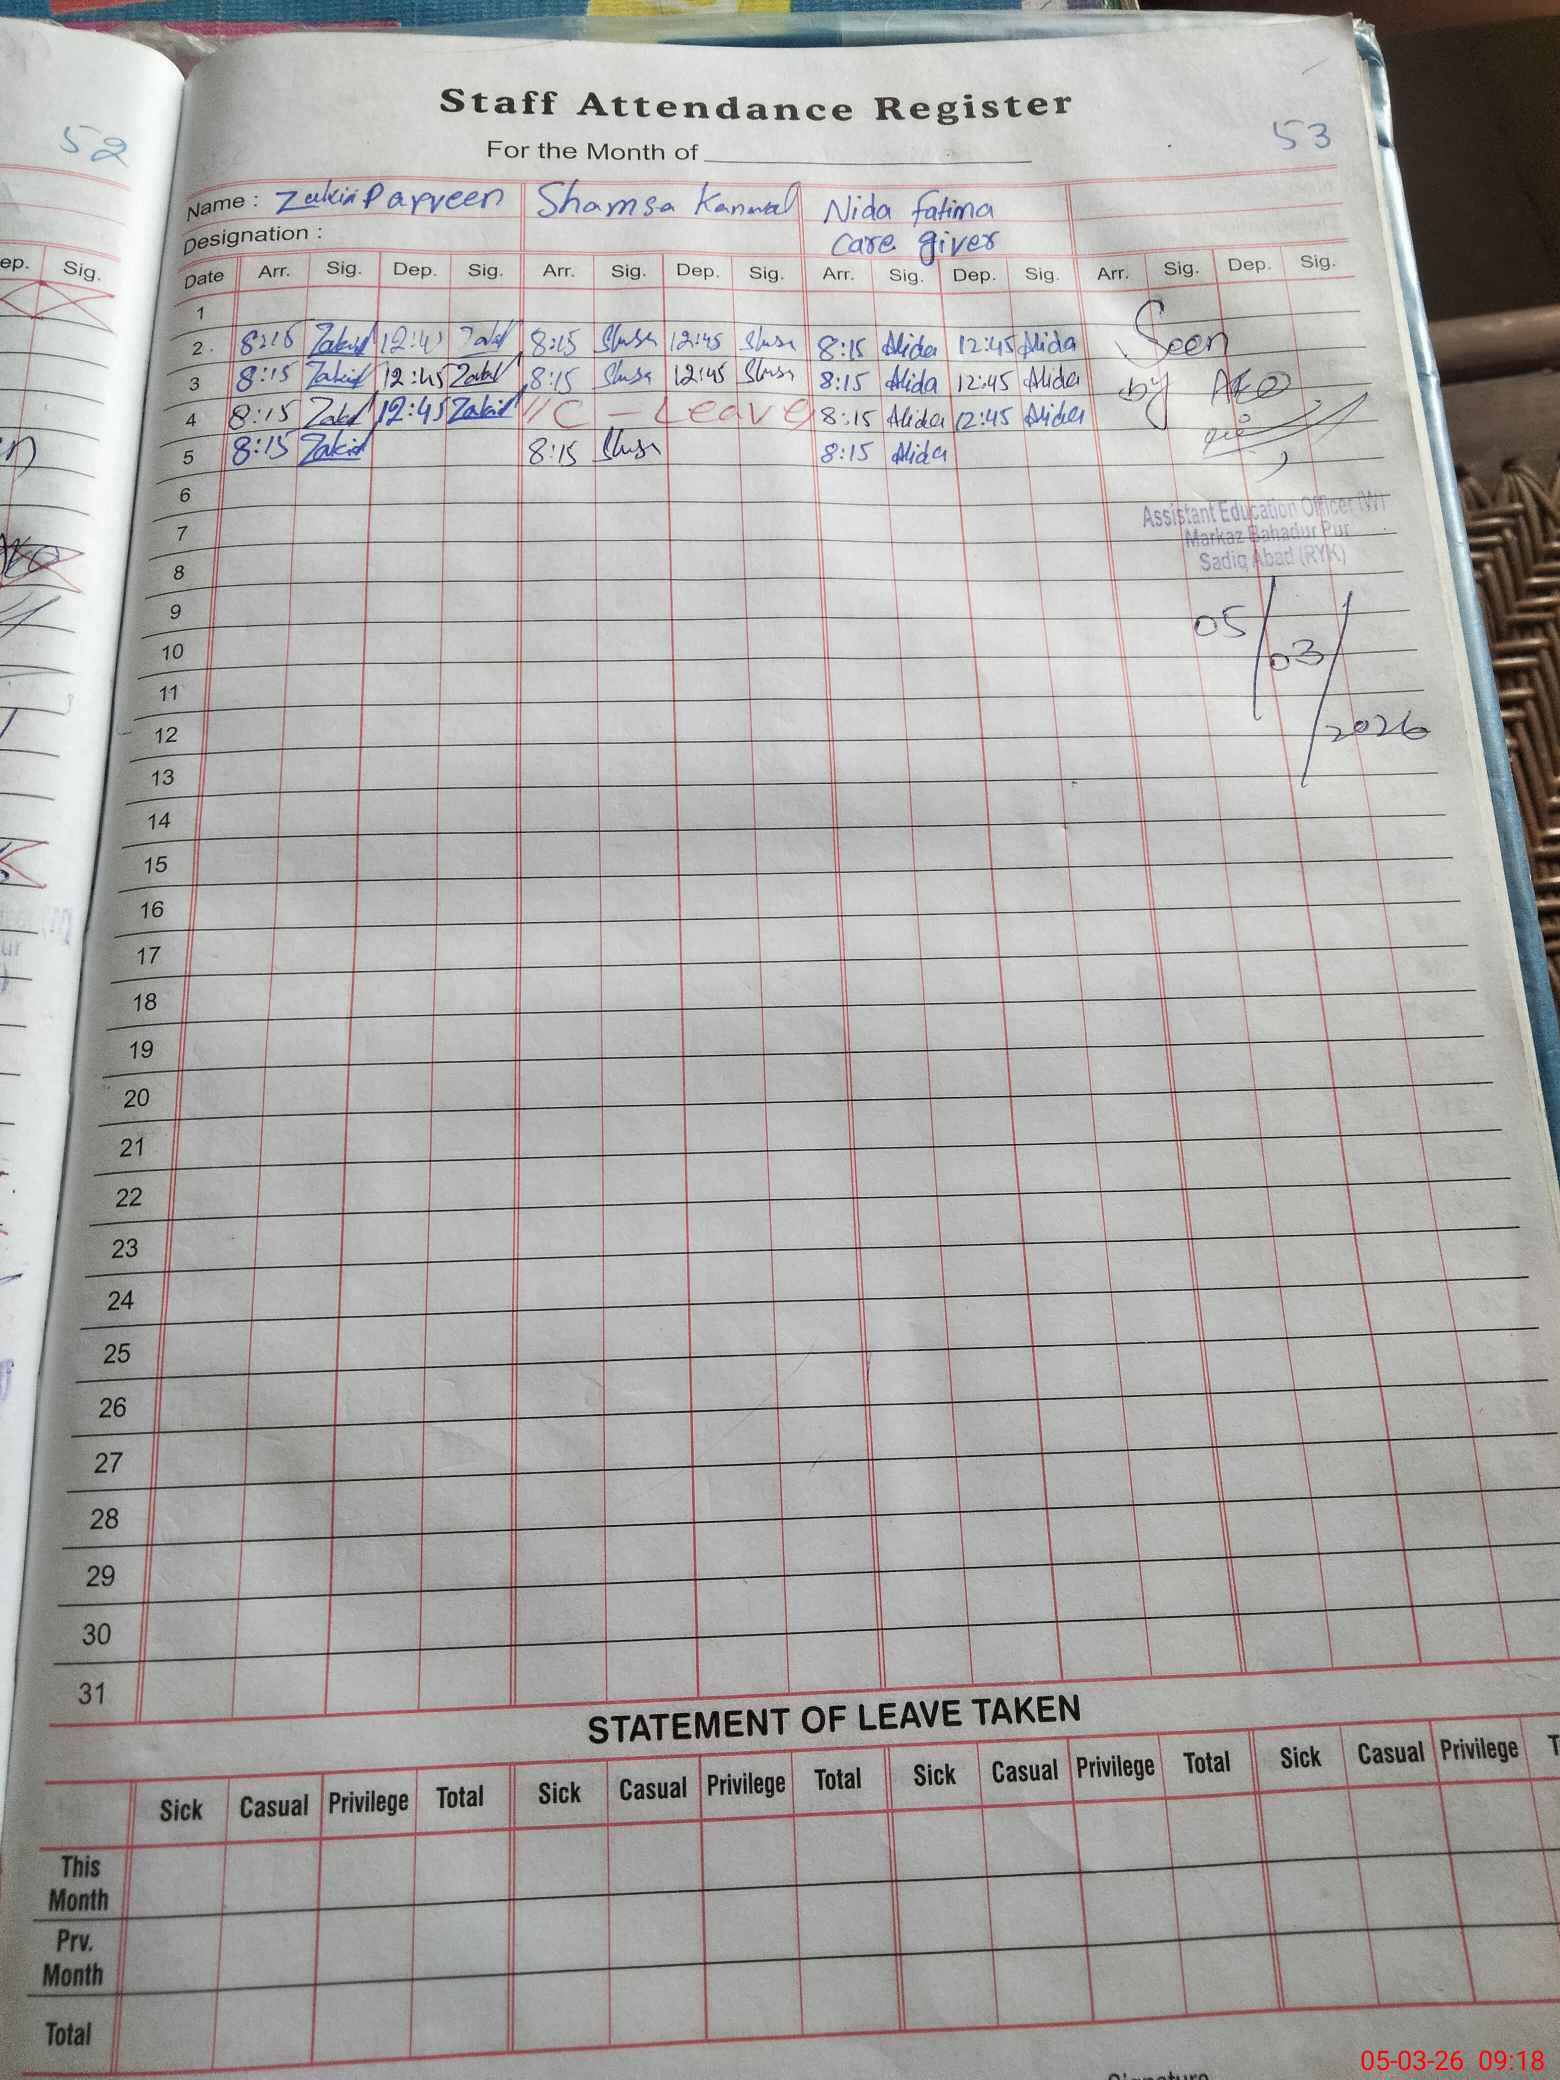 52
ep. Sig.
Staff Attendance Register
For the Month of
53
Name : Zakia Parveen Shamsa Kanwal Nida Fatima
Designation : Care giver
Date Arr. Sig. Dep. Sig. Arr. Sig. Dep. Sig. Arr. Sig. Dep. Sig. Arr. Sig. Dep. Sig.
1
2 8:15 12:4 8:15 12:45 8:15 Nida 12:45 Nida Seen
3 8:15 12:45 8:15 12:45 8:15 Nida 12:45 Nida by AEO
4 8:15 12:45 C - Leave 8:15 Nida 12:45 Nida
5 8:15 8:15 8:15 Nida
6
Assistant Education Officer (W)
7
Markaz Bahadur Pur
8
Sadiq Abad (RYK)
9
05/03/2026
10
11
12
13
14
15
16
17
18
19
20
21
22
23
24
25
26
27
28
29
30
31
STATEMENT OF LEAVE TAKEN
Sick Casual Privilege Total Sick Casual Privilege Total Sick Casual Privilege Total Sick Casual Privilege T
This
Month
Prv.
Month
Total
Signature
05-03-26 09:18